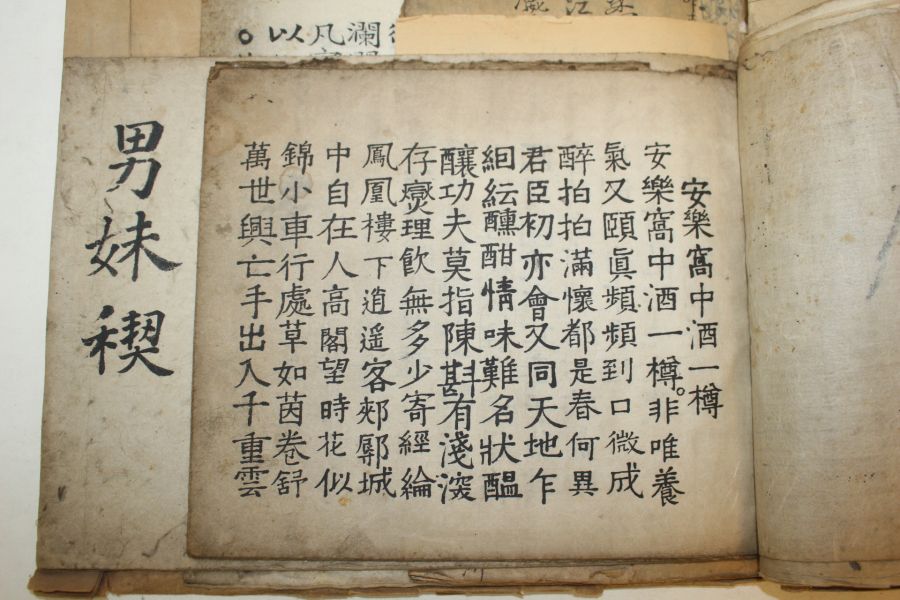 安樂窩中酒一樽
安樂窩中酒一樽。非唯養
氣又頤眞頻頻到口微成
醉拍拍滿懷都是春何異
君臣初亦會又同天地乍
絪紜醺酣情味難名狀醞
釀功夫莫指陳斟有淺深
存爕理飮無多少寄經綸
鳳凰樓下逍遥客郟鄏城
中自在人高閣望時花似
錦小車行處草如茵卷舒
萬世興亡手出入千重雲
男妹稧
瀾
凡
以
江